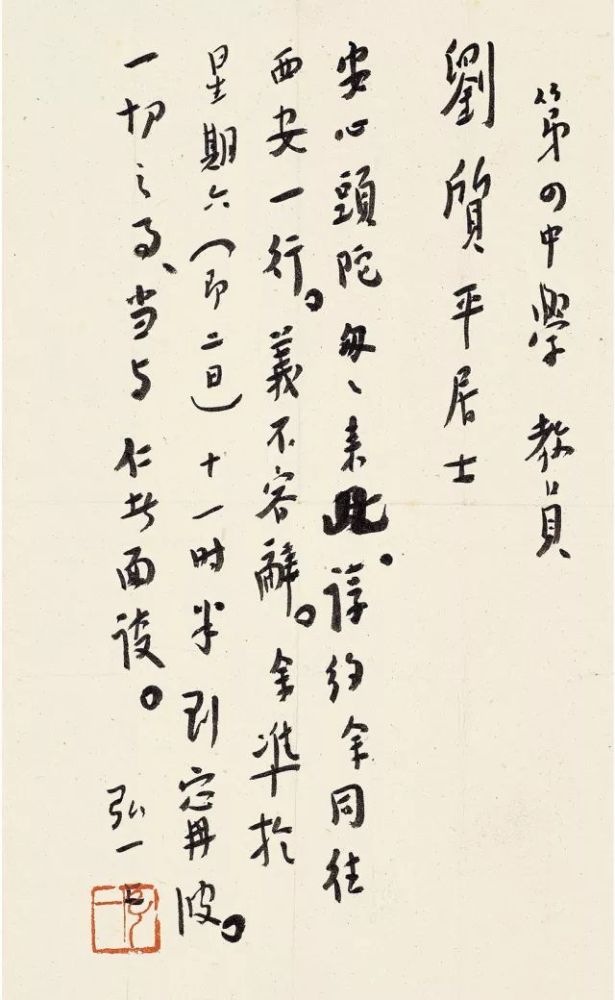 第四中學 教員
劉質平居士
安心頭陀匆〻来此。諄約余同往
西安一行。義不容辭。余準於
星期六（即二日）十一时半到甯波。
一切之事、当与仁者面谈。
弘一